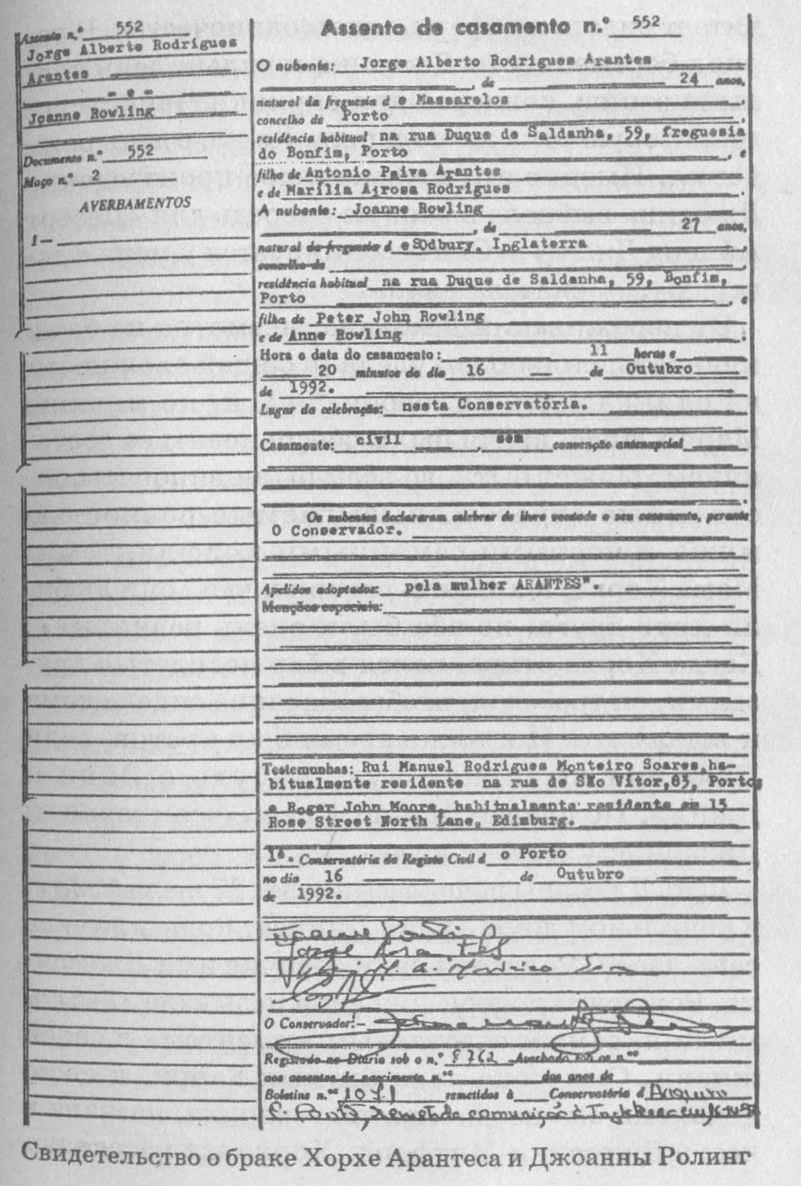 Assento n.º 552
Jorge Alberto Rodrigues
Arantes
- e -
Joanne Rowling
Documento n.º 552
Maço n.º 2
AVERBAMENTOS
1 —
Assento de casamento n.º 552
O nubente: Jorge Alberto Rodrigues Arantes
, de 24 anos,
natural da freguesia d e Massarelos
concelho de Porto ,
residência habitual na rua Duque de Saldanha, 59, freguesia
do Bonfim, Porto , e
filho de Antonio Paiva Arantes
e de Marília Airosa Rodrigues .
A nubente: Joanne Rowling
, de 27 anos,
natural da freguesia d e Sodbury, Inglaterra
concelho de ,
residência habitual na rua Duque de Saldanha, 59, Bonfim,
Porto , e
filha de Peter John Rowling
e de Anne Rowling .
Hora e data do casamento: 11 horas e
20 minutos do dia 16 de Outubro
de 1992.
Lugar da celebração: nesta Conservatória.
Casamento: civil , sem convenção antenupcial
Os nubentes declararam celebrar de livre vontade o seu casamento, perante
O Conservador.
Apelidos adoptados: pela mulher ARANTES".
Menções especiais:
Testemunhas: Rui Manuel Rodrigues Monteiro Soares, ha-
bitualmente residente na rua de São Vítor, 83, Porto
e Roger John Moore, habitualmente residente em 15
Rose Street North Lane, Edimburg.
1ª. Conservatória do Registo Civil d o Porto
no dia 16 de Outubro
de 1992.
Jorge Arantes
O Conservador:-
Registado no Diário sob o n.º 8762 Averbado sob os n.ºs
aos assentos de nascimento n.ºs dos anos de
Boletins n.ºs 1071 remetidos à Conservatória d
Свидетельство о браке Хорхе Арантеса и Джоанны Ролинг